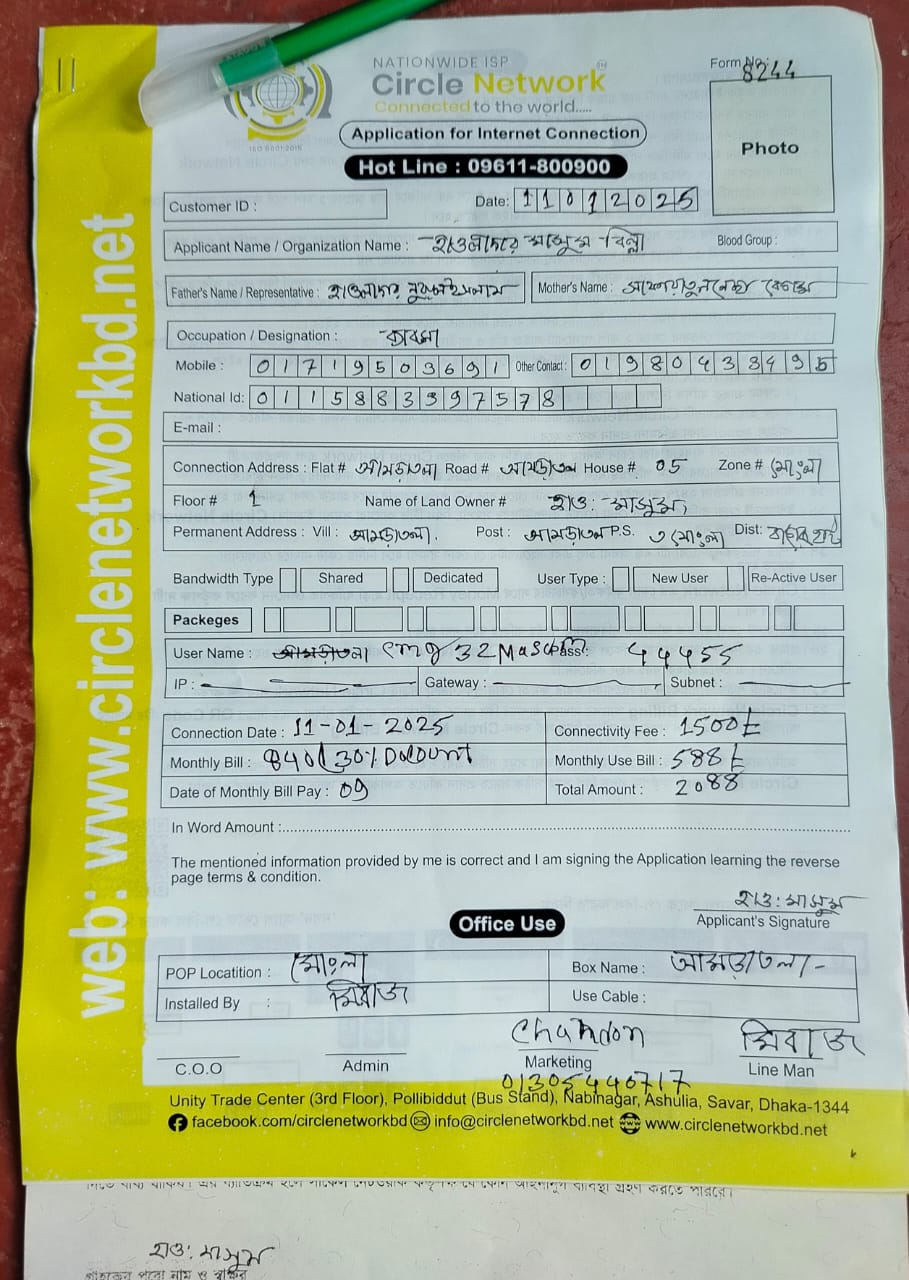 NATIONWIDE ISP
Circle Network
Connected to the world.....
ISO 9001:2015
Form No: 8244
Application for Internet Connection
Hot Line : 09611-800900
Photo
Customer ID :
Date: 11012025
Applicant Name / Organization Name : হাওলাদার মাসুম বিল্লা Blood Group :
Father's Name / Representative : হাওলাদার নুরুল ইসলাম Mother's Name : বেগম
Occupation / Designation : ব্যবসা
Mobile : 01719503691 Other Contact : 01980433495
National Id: 0115883397578
E-mail :
Connection Address : Flat # আমড়াতলা Road # আমড়াতলা House # 05 Zone # মোংলা
Floor # 1 Name of Land Owner # হাও: মাসুম,
Permanent Address : Vill : আমড়াতলা. Post : আমড়াতলা P.S. মোংলা Dist: বাগেরহাট
Bandwidth Type Shared Dedicated User Type : New User Re-Active User
Packeges
User Name : cmg32Masum Pass: 44455
IP : Gateway : Subnet :
Connection Date : 11-01-2025 Connectivity Fee : 1500
Monthly Bill : 840 30% Monthly Use Bill : 588
Date of Monthly Bill Pay : 09 Total Amount : 2088
In Word Amount :
The mentioned information provided by me is correct and I am signing the Application learning the reverse
page terms & condition.
হাও: মাসুম
Applicant's Signature
Office Use
POP Locatition : মোংলা Box Name : আমড়াতলা-
Installed By : মিরাজ Use Cable :
Chandon মিরাজ
C.O.O Admin Marketing Line Man
01305440717
Unity Trade Center (3rd Floor), Pollibiddut (Bus Stand), Nabinagar, Ashulia, Savar, Dhaka-1344
facebook.com/circlenetworkbd info@circlenetworkbd.net www.circlenetworkbd.net
web: www.circlenetworkbd.net
হাও: মাসুম